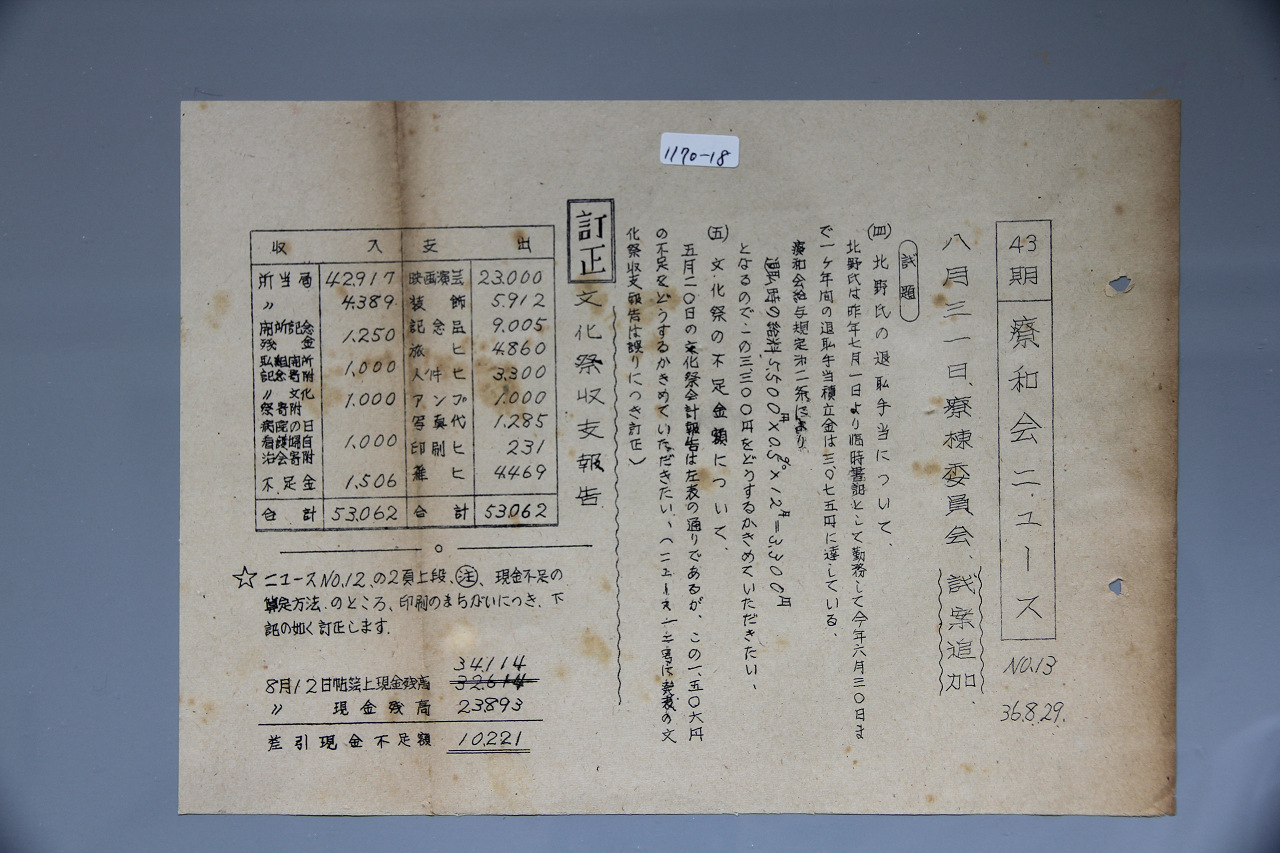 1170-18
43期 療和会ニュース
NO.13
36.8.29.
八月三一日、療棟委員会、試案追加、
試題
(四) 北野氏の退私手当について、
北野氏は昨年七月一日より臨時書記として勤務して今年六月三〇日ま
で一ヶ年間の退私手当積立金は三、〇七五円に達している、
療和会給与規定オ二条により
退私時の給料5,500円×0.5%×12月=3,300円
となるので、この三、三〇〇円をどうするかきめていただきたい、
(五) 文化祭の不足金額について、
五月二〇日の文化祭会計報告は左表の通りであるが、この一、五〇六円
の不足をどうするかきめていただきたい、(ニュース一二号は
化祭収支報告は誤りにつき訂正)
訂正 文化祭収支報告
収入 支出
所当局 42,917 映画演芸 23,000
〃 4,389 装飾 5,912
開所記念残金 1,250 記念品 9,005
旅ヒ 4,860
私組開所記念寄附 1,000 人件ヒ 3,300
〃文化祭寄附 1,000 アンプ 1,000
写真代 1,285
病院の日看護婦自治会寄附 1,000 印刷ヒ 231
不足金 1,506 雑ヒ 4,469
合計 53,062 合計 53,062
☆ニュースNO.12、の2頁上段、注、現金不足の
算定方法、のところ、印刷のまちがいにつき、下
記の如く訂正します.
34,114
8月12日帖簿上現金残高 32,614
〃 現金残高 23,893
差引現金不足額 10,221